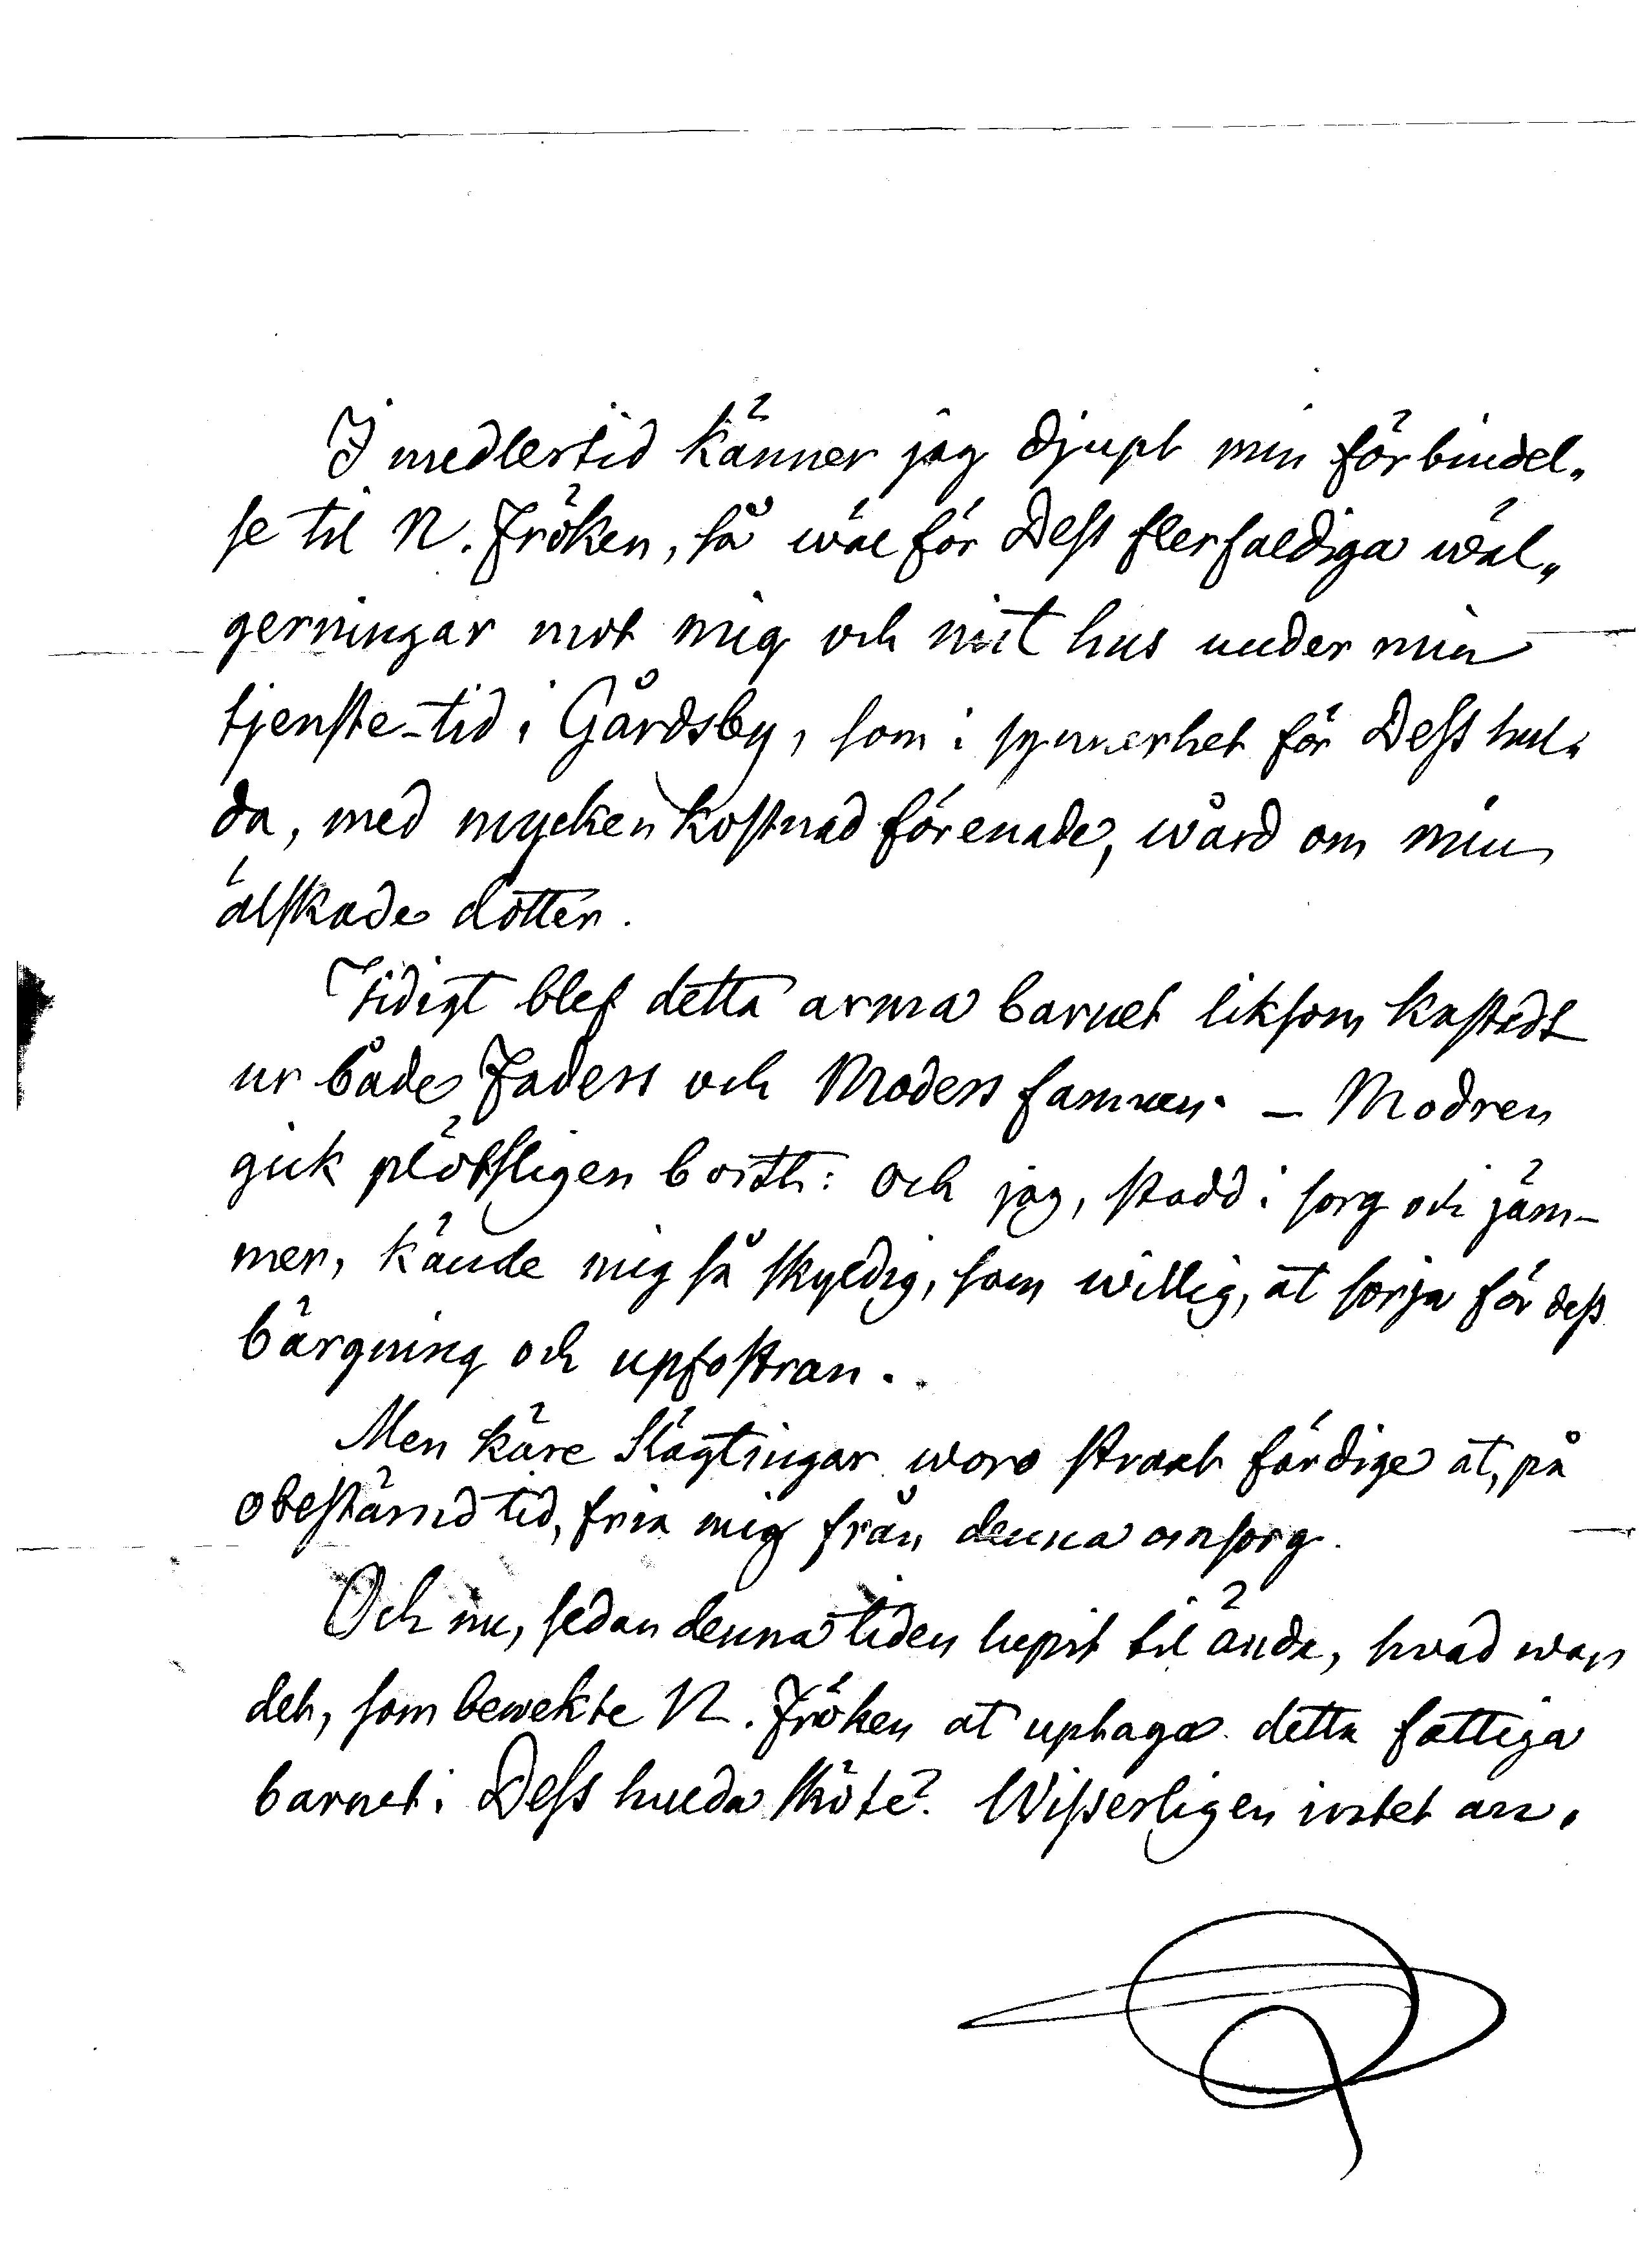 I medlertid känner jag djupt min förbindel„
se til N. Fröken, så wäl för Dess flerfaldiga wäl„
gerningar mot mig och mit hus under min
tjenste-tid i Gårdsby, som i synnerhet för Dess hul„
da, med mycken kostnad förenade, wård om min
älskade dotter.
Tidigt blef detta arma barnet liksom kastadt
ur både Faders och Moders famnen. – Modren
gick plötsligen bortt: och jag, stadd i sorg och jäm-
mer, kände mig så skyldig, som willig, at sörja för dess
bärgning och upfostran.
Men käre Slägtingar woro straxt färdige at, på
obestämd tid, fria mig från denna omsorg.
Och nu, sedan denna tiden lupit til ända, hvad war
det, som bewekte N. Fröken at uptaga detta fattiga
barnet i Dess hulda sköte? Wisserligen intet an„